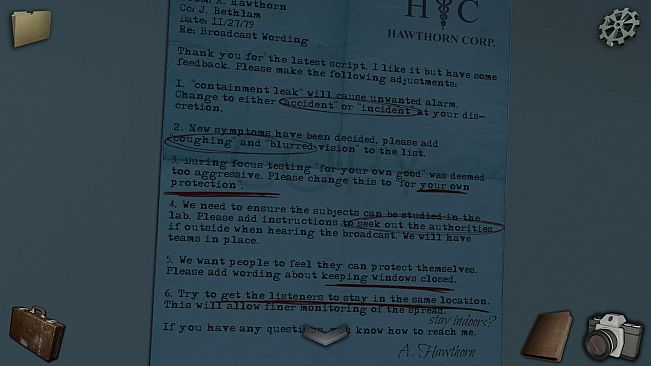 Hawthorn
Cc: J. Bethlam
Date: 11/27/79
Re: Broadcast Wording
H C
HAWTHORN CORP.
Thank you for the latest script, I like it but have some
feedback. Please make the following adjustments:
1. "containment leak" will cause unwanted alarm.
Change to either "accident" or "incident" at your dis-
cretion.
2. New symptoms have been decided, please add
"coughing" and "blurred vision" to the list.
3. During focus testing "for your own good" was deemed
too aggressive. Please change this to "for your own
protection".
4. We need to ensure the subjects can be studied in the
lab. Please add instructions to seek out the authorities
if outside when hearing the broadcast. We will have
teams in place.
5. We want people to feel they can protect themselves.
Please add wording about keeping windows closed.
6. Try to get the listeners to stay in the same location.
This will allow finer monitoring of the spread.
stay indoors?
If you have any questions, you know how to reach me.
A. Hawthorn